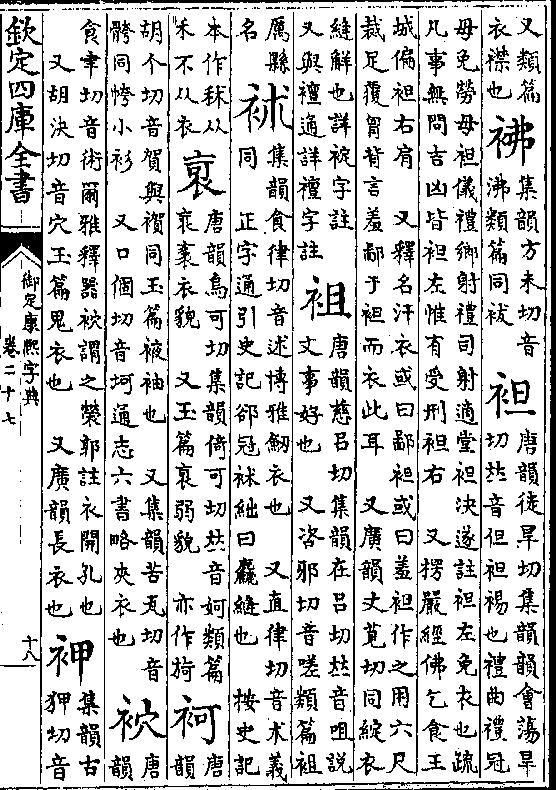 又類篇
衣襟也
𥙆
集韻方未切音
沸類篇同袚
袒
唐韻徒旱切集韻韻會蕩旱
切𠀤音但袒裼也禮曲禮冠
毋免勞毋袒儀禮鄉射禮司射適堂袒決遂註袒左免衣也疏
凡事無問吉凶皆袒左惟有受刑袒右 又楞嚴經佛乞食王
城偏袒右肩 又釋名汗衣或曰鄙袒或曰羞袒作之用六尺
裁足覆胷背言羞鄙于袒而衣此耳 又廣韻丈莧切同綻衣
縫解也詳袨字註
又與襢通詳襢字註
袓
唐韻慈呂切集韻在呂切𠀤音咀說
文事好也 又咨邪切音嗟類篇袓
厲縣
名
袕
集韻食律切音述博雅紉衣也 又直律切音术義
同 正字通引史記郤冠袕絀曰麤縫也 按史記
本作秫从
禾不从衣
𧙃
唐韻烏可切集韻倚可切𠀤音妸類篇
𧙃𧚅衣貌 又玉篇𧙃弱貌 亦作旑
袔
唐韻
胡个切音賀與䙎同玉篇袚袖也 又集韻苦瓦切音
骻同袴小衫 又口個切音坷通志六書略夾衣也
袕
唐韻
食聿切音術爾雅釋器袕謂之䙬郭註衣開孔也
又胡決切音穴玉篇鬼衣也 又廣韻長衣也
𥘹
集韻古
狎切音
欽定四庫全書
御定康熙字典
卷二十七
十八